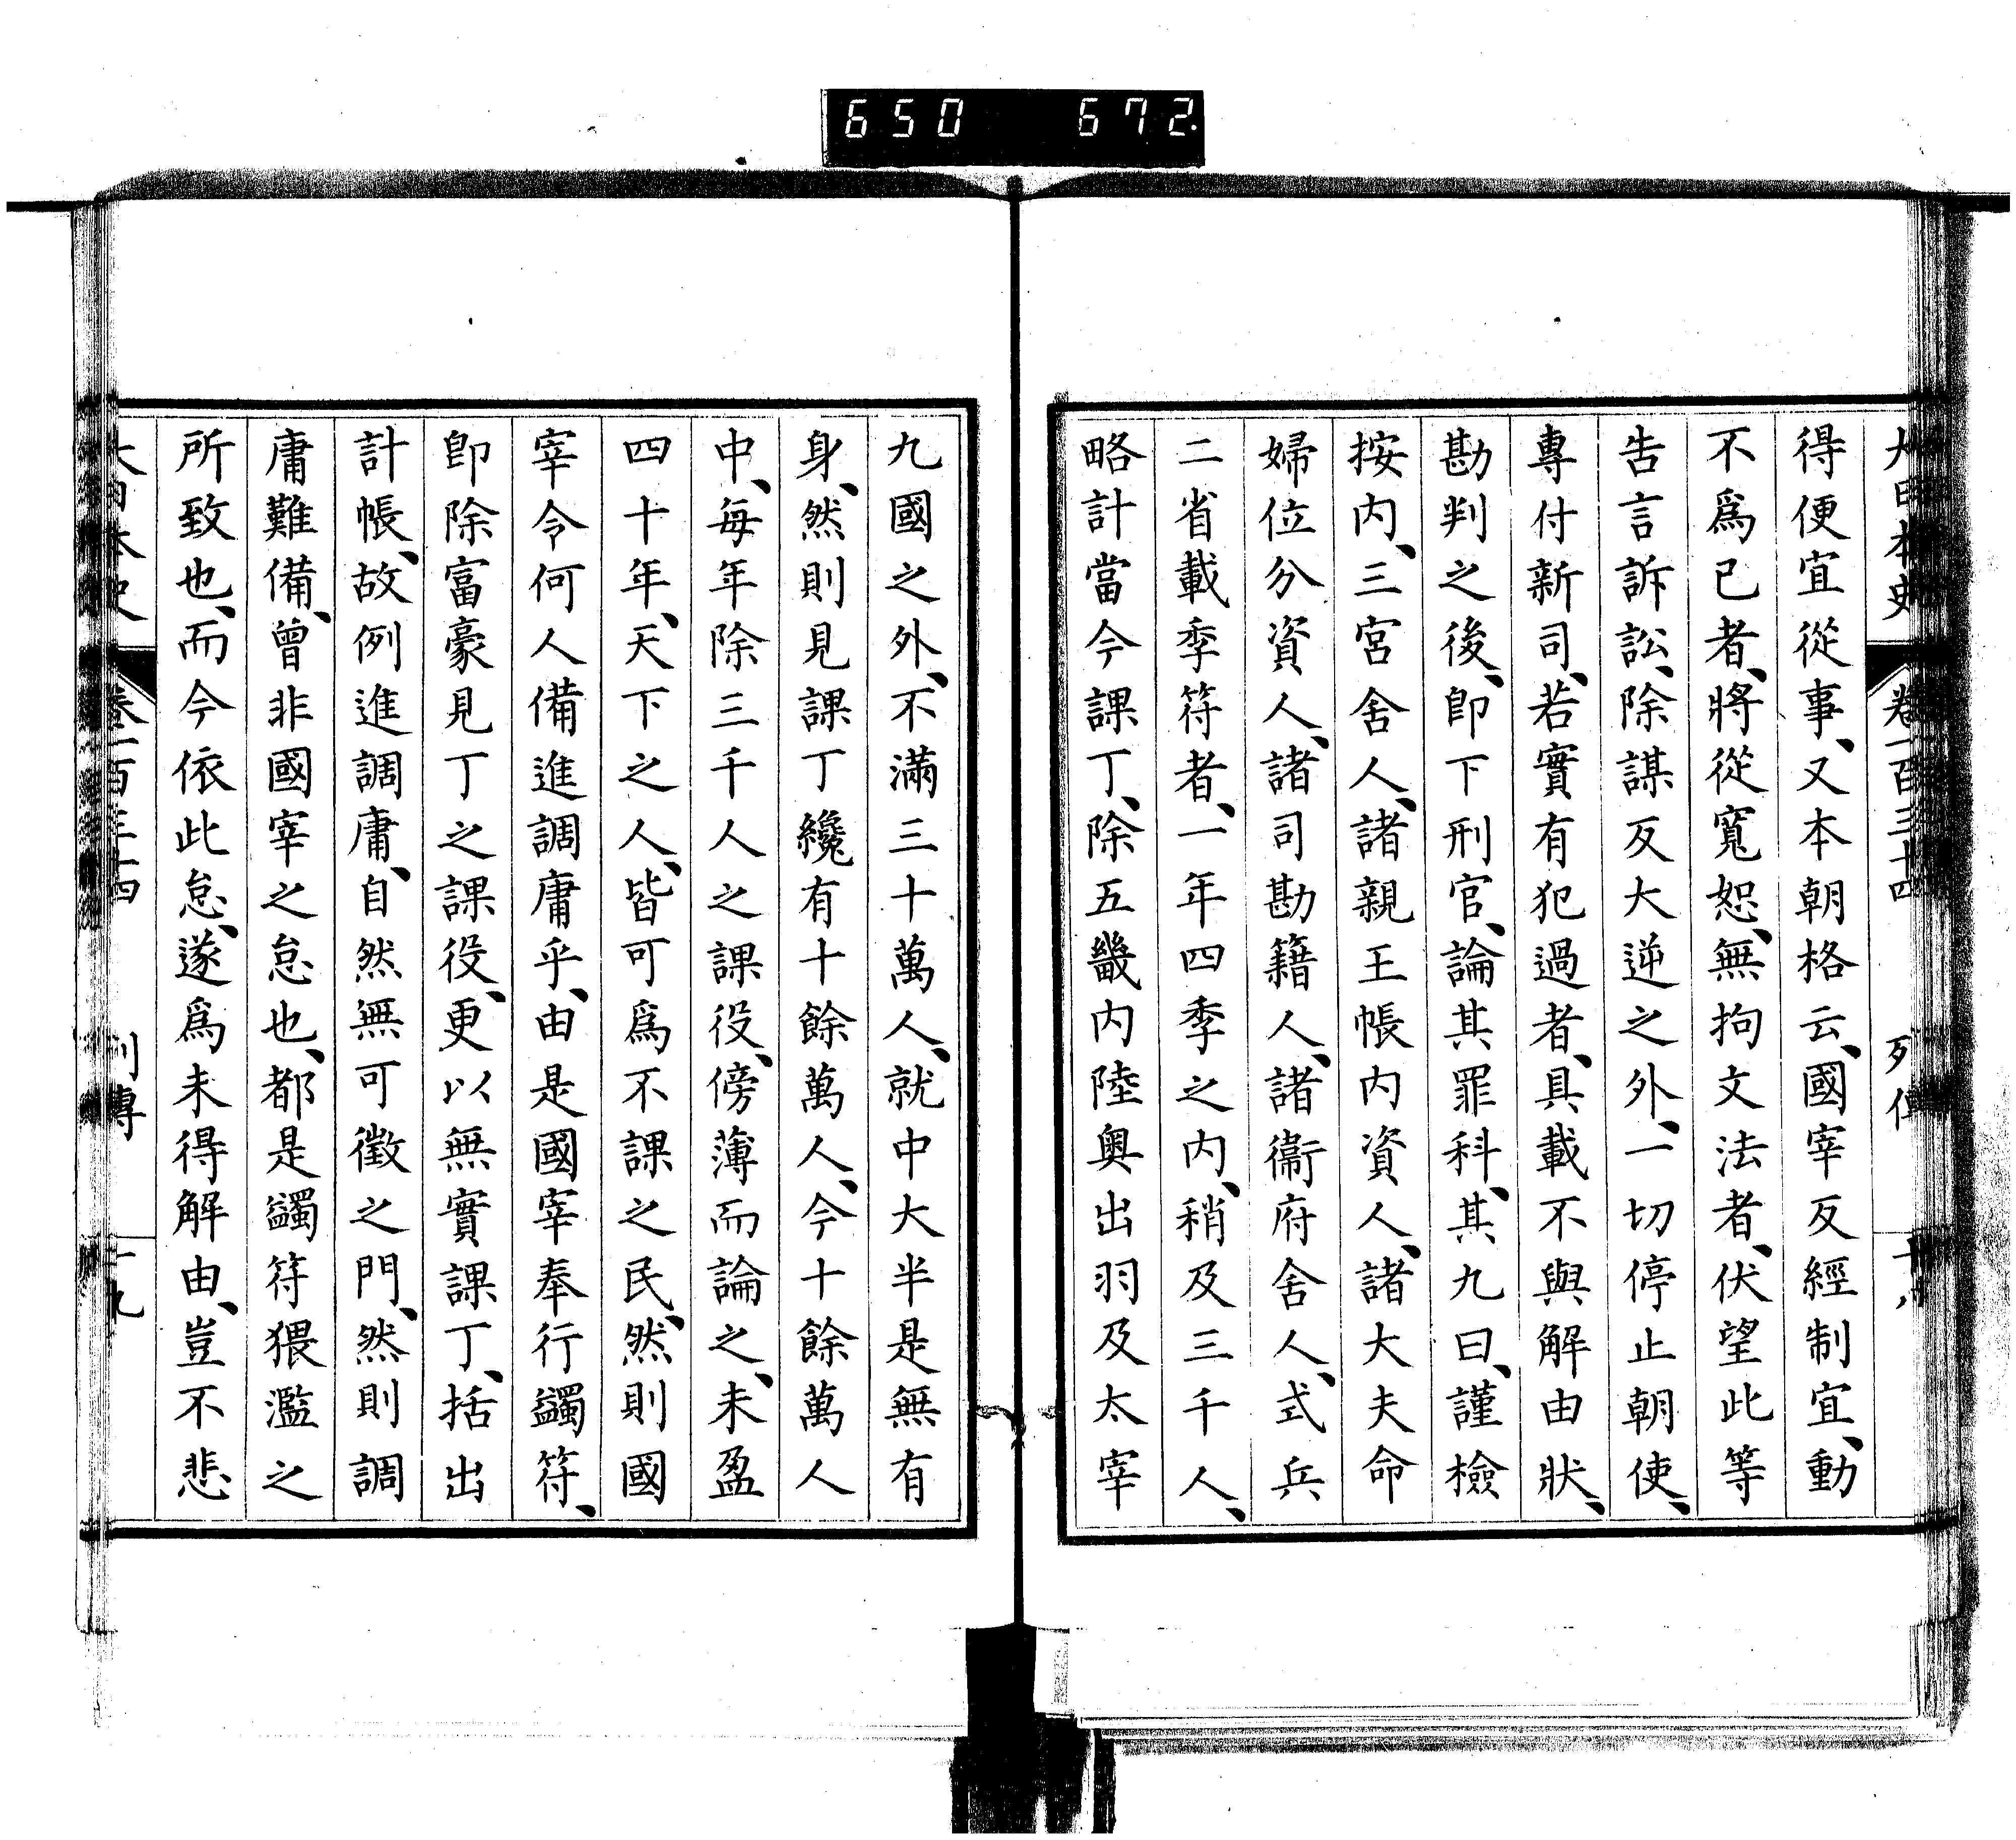 650 672.
大日本史 卷一百三十四 列傳 十八
得便宜從事、又本朝格云、國宰反經制宜、動
不爲己者、將從寬恕、無拘文法者、伏望此等
告言訴訟、除謀反大逆之外、一切停止朝使、
專付新司、若實有犯過者、具載不與解由狀、
勘判之後、卽下刑官、論其罪科、其九曰、謹檢
按內、三宮舍人、諸親王帳內資人、諸大夫命
婦位分資人、諸司勘籍人、諸衞府舍人、式兵
二省載季符者、一年四季之內、稍及三千人、
略計當今課丁、除五畿內陸奧出羽及太宰
九國之外、不滿三十萬人、就中大半是無有
身、然則見課丁纔有十餘萬人、今十餘萬人
中、每年除三千人之課役、傍薄而論之、未盈
四十年、天下之人、皆可爲不課之民、然則國
宰令何人備進調庸乎、由是國宰奉行蠲符、
卽除富豪見丁之課役、更以無實課丁、括出
計帳、故例進調庸、自然無可徵之門、然則調
庸難備、曾非國宰之怠也、都是蠲符猥濫之
所致也、而今依此怠、遂爲未得解由、豈不悲
大日本史 卷一百三十四 列傳 十九